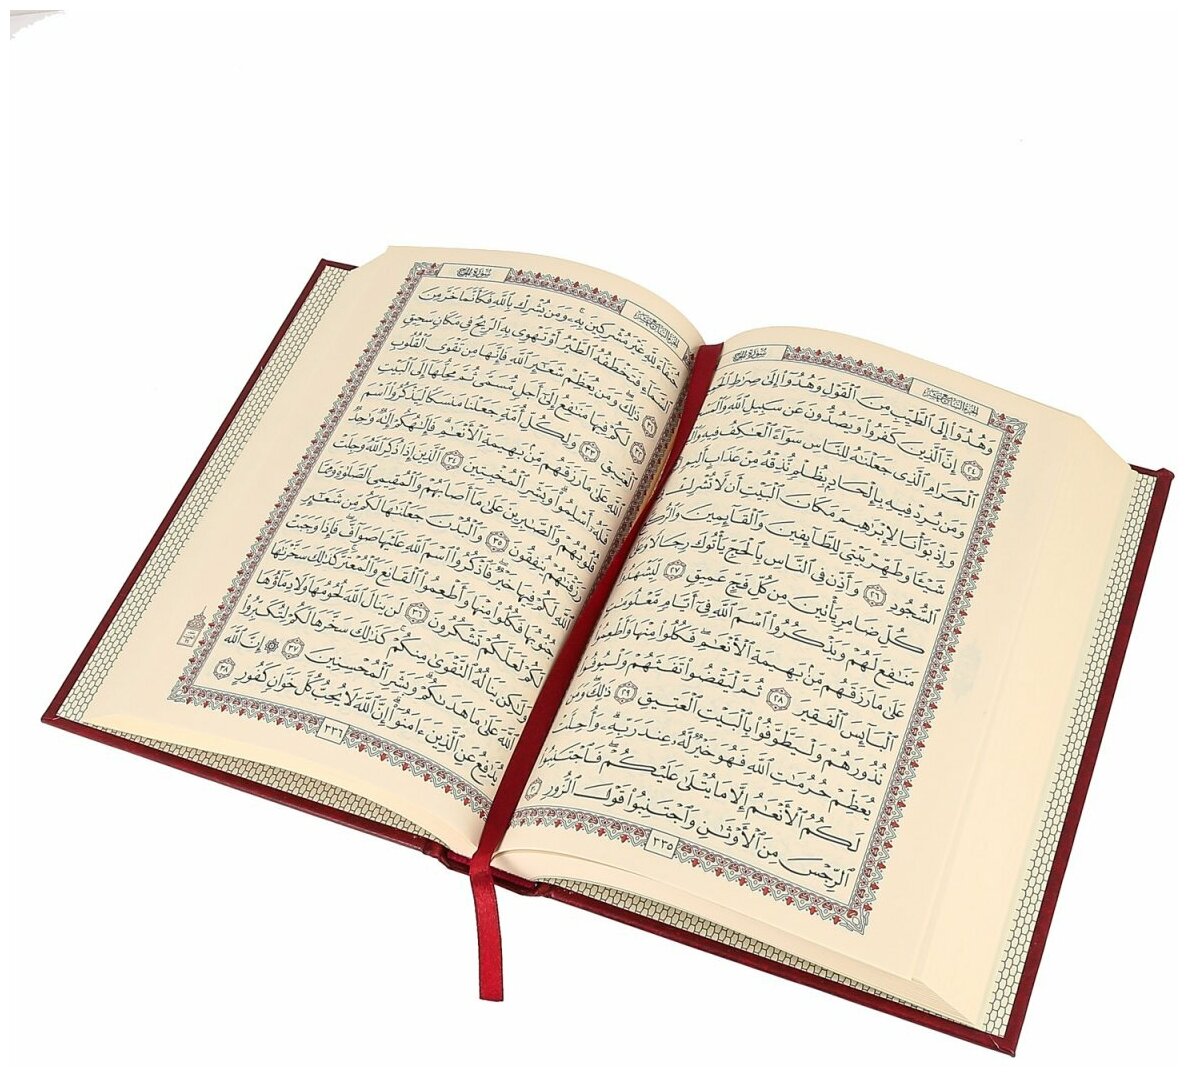 سُورَةُ الحَجِّ الجُزْءُ السَّابِعَ عَشَرَ
وَهُدُوٓا۟ إِلَى ٱلطَّيِّبِ مِنَ ٱلْقَوْلِ وَهُدُوٓا۟ إِلَىٰ صِرَٰطِ
٢٤ إِنَّ ٱلَّذِينَ كَفَرُوا۟ وَيَصُدُّونَ عَن سَبِيلِ ٱللَّهِ
ٱلْحَرَامِ ٱلَّذِى جَعَلْنَٰهُ لِلنَّاسِ سَوَآءً ٱلْعَٰكِفُ فِيهِ
وَمَن يُرِدْ فِيهِ بِإِلْحَادٍۭ بِظُلْمٍ نُّذِقْهُ مِنْ عَذَابٍ
وَإِذْ بَوَّأْنَا لِإِبْرَٰهِيمَ مَكَانَ ٱلْبَيْتِ أَن لَّا
شَيْـًٔا وَطَهِّرْ بَيْتِىَ لِلطَّآئِفِينَ وَٱلْقَآئِمِينَ
ٱلسُّجُودِ ٢٦ وَأَذِّن فِى ٱلنَّاسِ بِٱلْحَجِّ يَأْتُوكَ رِجَالًا
كُلِّ ضَامِرٍ يَأْتِينَ مِن كُلِّ فَجٍّ عَمِيقٍ ٢٧
مَنَٰفِعَ لَهُمْ وَيَذْكُرُوا۟ ٱسْمَ ٱللَّهِ فِىٓ أَيَّامٍ مَّعْلُومَٰتٍ
عَلَىٰ مَا رَزَقَهُم مِّنۢ بَهِيمَةِ ٱلْأَنْعَٰمِ ۖ فَكُلُوا۟ مِنْهَا
ٱلْبَآئِسَ ٱلْفَقِيرَ ٢٨ ثُمَّ لْيَقْضُوا۟ تَفَثَهُمْ
نُذُورَهُمْ وَلْيَطَّوَّفُوا۟ بِٱلْبَيْتِ ٱلْعَتِيقِ ٢٩ ذَٰلِكَ وَمَن
يُعَظِّمْ حُرُمَٰتِ ٱللَّهِ فَهُوَ خَيْرٌ لَّهُۥ عِندَ رَبِّهِۦ ۗ
لَكُمُ ٱلْأَنْعَٰمُ إِلَّا مَا يُتْلَىٰ عَلَيْكُمْ ۖ فَٱجْتَنِبُوا۟
ٱلرِّجْسَ مِنَ ٱلْأَوْثَٰنِ وَٱجْتَنِبُوا۟ قَوْلَ ٱلزُّورِ ٣٠
٣٣٥
سُورَةُ الحَجِّ الجُزْءُ السَّابِعَ عَشَرَ
حُنَفَآءَ لِلَّهِ غَيْرَ مُشْرِكِينَ بِهِۦ ۚ وَمَن يُشْرِكْ بِٱللَّهِ فَكَأَنَّمَا خَرَّ مِنَ
ٱلسَّمَآءِ فَتَخْطَفُهُ ٱلطَّيْرُ أَوْ تَهْوِى بِهِ ٱلرِّيحُ فِى مَكَانٍ سَحِيقٍ
٣١ ذَٰلِكَ وَمَن يُعَظِّمْ شَعَٰٓئِرَ ٱللَّهِ فَإِنَّهَا مِن تَقْوَى ٱلْقُلُوبِ
٣٢ لَكُمْ فِيهَا مَنَٰفِعُ إِلَىٰٓ أَجَلٍ مُّسَمًّى ثُمَّ مَحِلُّهَآ إِلَى ٱلْبَيْتِ
ٱلْعَتِيقِ ٣٣ وَلِكُلِّ أُمَّةٍ جَعَلْنَا مَنسَكًا لِّيَذْكُرُوا۟ ٱسْمَ
ٱللَّهِ عَلَىٰ مَا رَزَقَهُم مِّنۢ بَهِيمَةِ ٱلْأَنْعَٰمِ ۗ فَإِلَٰهُكُمْ إِلَٰهٌ وَٰحِدٌ
فَلَهُۥٓ أَسْلِمُوا۟ ۗ وَبَشِّرِ ٱلْمُخْبِتِينَ ٣٤ ٱلَّذِينَ إِذَا ذُكِرَ ٱللَّهُ وَجِلَتْ
قُلُوبُهُمْ وَٱلصَّٰبِرِينَ عَلَىٰ مَآ أَصَابَهُمْ وَٱلْمُقِيمِى ٱلصَّلَوٰةِ وَمِمَّا
رَزَقْنَٰهُمْ يُنفِقُونَ ٣٥ وَٱلْبُدْنَ جَعَلْنَٰهَا لَكُم مِّن شَعَٰٓئِرِ
ٱللَّهِ لَكُمْ فِيهَا خَيْرٌ ۖ فَٱذْكُرُوا۟ ٱسْمَ ٱللَّهِ عَلَيْهَا صَوَآفَّ ۖ فَإِذَا وَجَبَتْ
جُنُوبُهَا فَكُلُوا۟ مِنْهَا وَأَطْعِمُوا۟ ٱلْقَانِعَ وَٱلْمُعْتَرَّ ۚ كَذَٰلِكَ سَخَّرْنَٰهَا
لَكُمْ لَعَلَّكُمْ تَشْكُرُونَ ٣٦ لَن يَنَالَ ٱللَّهَ لُحُومُهَا وَلَا دِمَآؤُهَا
وَلَٰكِن يَنَالُهُ ٱلتَّقْوَىٰ مِنكُمْ ۚ كَذَٰلِكَ سَخَّرَهَا لَكُمْ لِتُكَبِّرُوا۟
ٱللَّهَ عَلَىٰ مَا هَدَىٰكُمْ ۗ وَبَشِّرِ ٱلْمُحْسِنِينَ ٣٧ ۞ إِنَّ ٱللَّهَ
يُدَٰفِعُ عَنِ ٱلَّذِينَ ءَامَنُوٓا۟ ۗ إِنَّ ٱللَّهَ لَا يُحِبُّ كُلَّ خَوَّانٍ كَفُورٍ ٣٨
٣٣٦